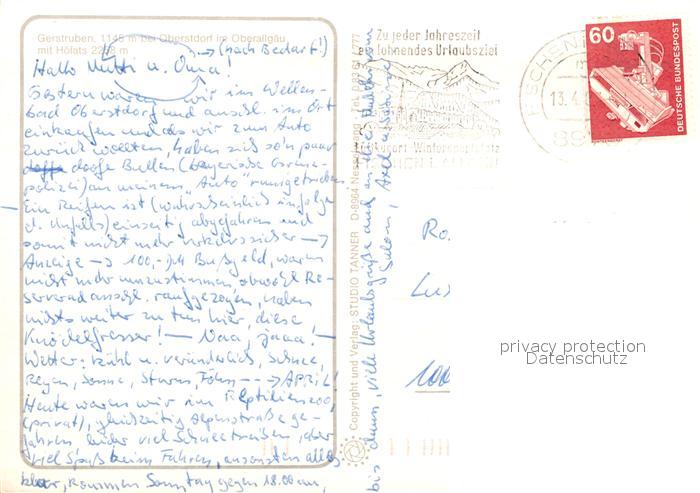 Gerstruben, 1145 m bei Oberstdorf im Oberallgäu
mit Höfats 2258 m
(nach Bedarf!)
Hallo Mutti u. Oma!
Gestern waren wir im Wellen-
bad Oberstdorf und anschl. im Ort
einkaufen und als wir zum Auto
zurück wollten, haben sich so'n paar
doofe Bullen (bayerische Grenz-
polizei) an meinem "Auto" rumgetrieben.
Ein Reifen ist (wahrscheinlich infolge
d. Unfalls) einseitig abgefahren und
somit nicht mehr verkehrssicher →
Anzeige → 100,- DM Bußgeld, waren
nicht mehr umzustimmen, obwohl Re-
serverad anschl. raufgezogen, haben
nichts weiter zu tun hier, diese
Knödelfresser! — Naa, jaaa! —
Wetter: kühl u. veränderlich, Schnee,
Regen, Sonne, Sturm, Föhn → APRIL!
Heute waren wir im Reptilienzoo,
(privat), gleichzeitig Alpenstraße ge-
fahren, leider viel Schneetreiben, aber
viel Spaß beim Fahren, ansonsten alles
klar, kommen Sonntag gegen 18.00 an,
bis dann, viele Urlaubsgrüße
Salou, Axel
Copyright und Verlag: STUDIO TANNER D-8964 Nesselwang
Zu jeder Jahreszeit
ein lohnendes Urlaubsziel
Luftkurort - Wintersportplatz
13.4.
60
DEUTSCHE BUNDESPOST
Ro.
100
privacy protection
Datenschutz